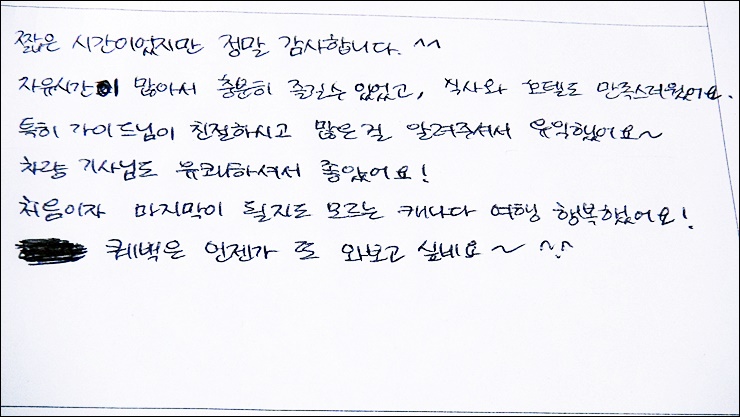 짧은 시간이었지만 정말 감사합니다. ^^
자유시간이 많아서 충분히 즐길수 있었고, 식사와 호텔도 만족스러웠어요.
특히 가이드님이 친절하시고 많은걸 알려주셔서 유익했어요~
차량 기사님도 유쾌하셔서 좋았어요!
처음이자 마지막이 될지도 모르는 캐나다 여행 행복했어요!
퀘벡은 언젠가 또 와보고 싶네요~ ^^